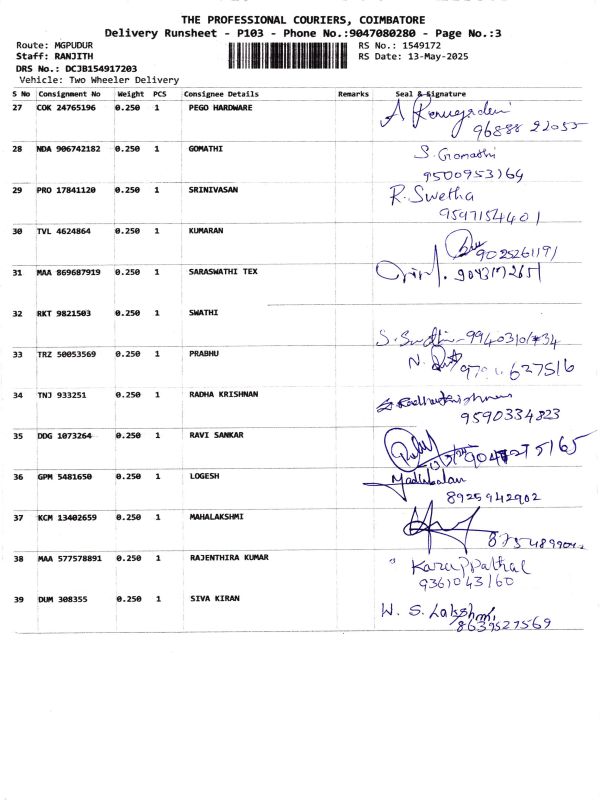 THE PROFESSIONAL COURIERS, COIMBATORE
Delivery Runsheet - P103 - Phone No.:9047080280 - Page No.:3
Route: MGPUDUR RS No.: 1549172
Staff: RANJITH RS Date: 13-May-2025
DRS No.: DCJB154917203
Vehicle: Two Wheeler Delivery
S No Consignment No Weight PCS Consignee Details Remarks Seal & Signature
27 COK 24765196 0.250 1 PEGO HARDWARE
96888 22055
28 NDA 906742182 0.250 1 GOMATHI S. Gomathi
9500953164
29 PRO 17841120 0.250 1 SRINIVASAN R. Swetha
9597154401
30 TVL 4624864 0.250 1 KUMARAN
9025261191
31 MAA 869687919 0.250 1 SARASWATHI TEX 9043172651
32 RKT 9821503 0.250 1 SWATHI
33 TRZ 50053569 0.250 1 PRABHU
34 TNJ 933251 0.250 1 RADHA KRISHNAN Radhakrishnan
9590334823
35 DDG 1073264 0.250 1 RAVI SANKAR
36 GPM 5481650 0.250 1 LOGESH Madhubalan
8925942902
37 KCM 13402659 0.250 1 MAHALAKSHMI
38 MAA 577578891 0.250 1 RAJENTHIRA KUMAR Karuppathal
9361043160
39 DUM 308355 0.250 1 SIVA KIRAN W. S. Lakshmi
8639527569